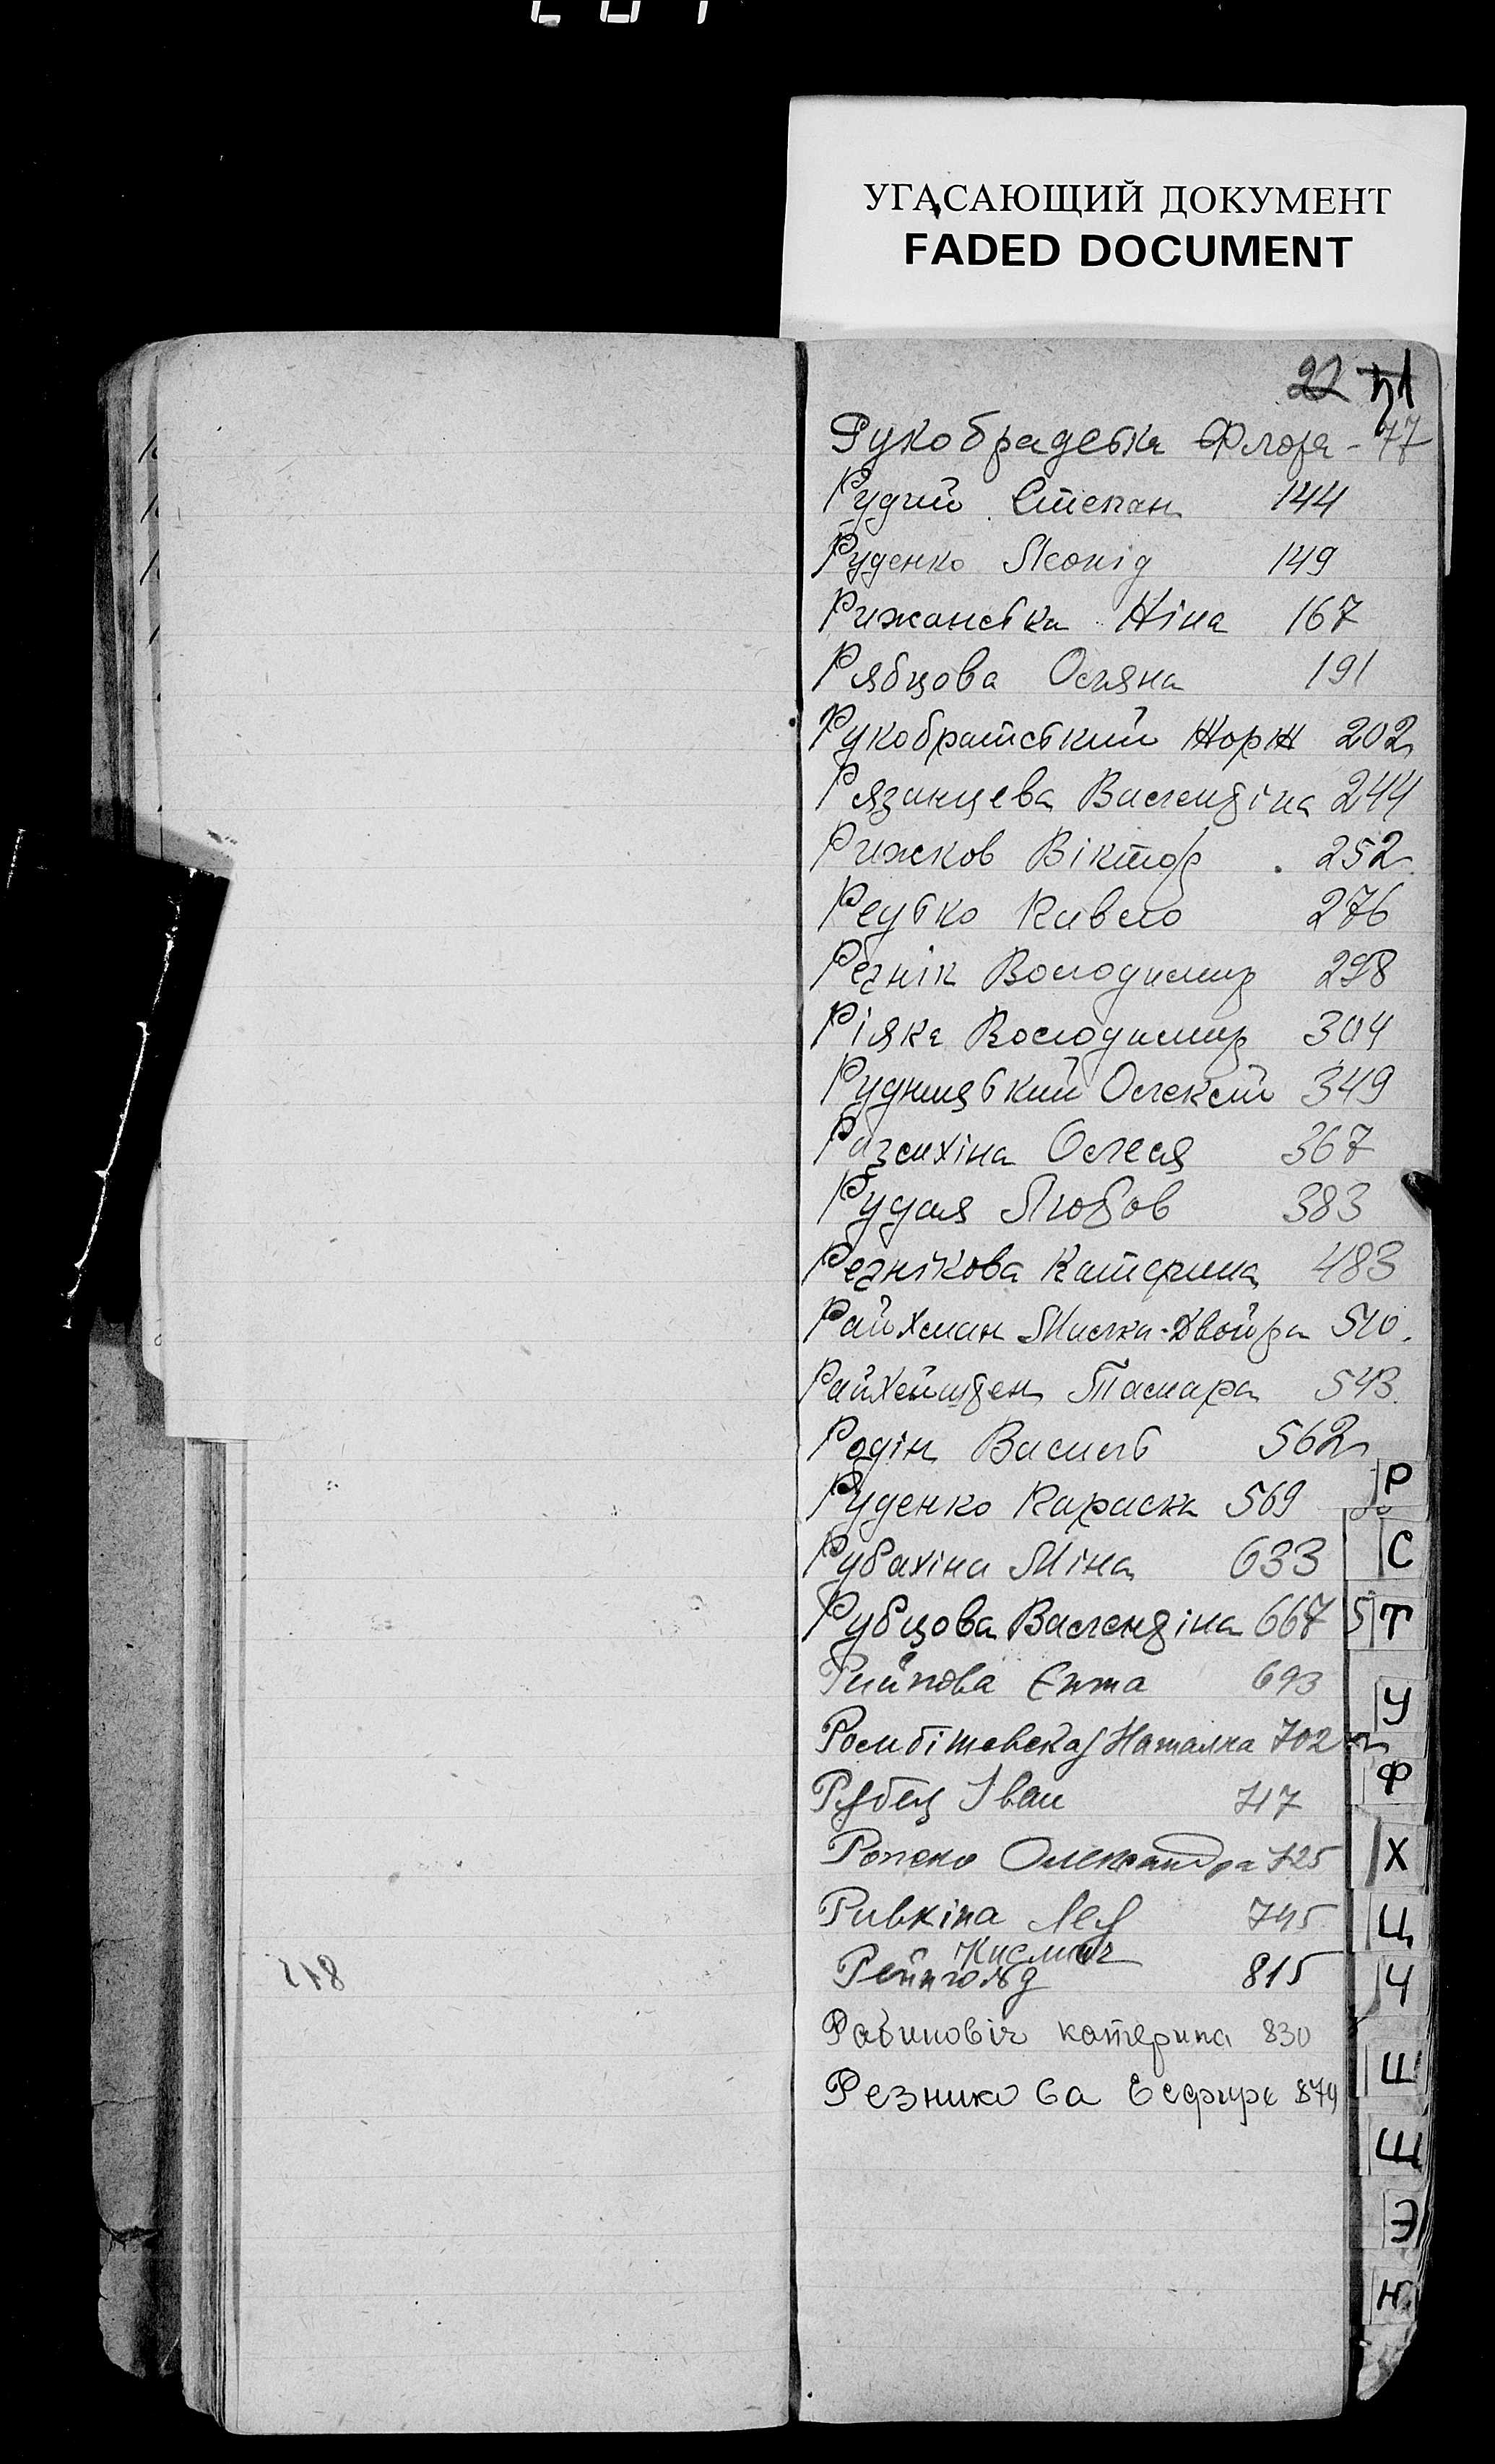 УГАСАЮЩИЙ ДОКУМЕНТ
FADED DOCUMENT
22
Рукобрадська Флора - 77
Рудий Степан 144
Руденко Леонід 149
Рижанська Ніна 167
Рябцова Осяна 191
Рукобратський Жорж 202
Рязанцева Валендіна 244
Рижков Віктор 252
Редько Кивело 276
Резнік Володимир 298
Ріяка Володимир 304
Рудницький Олексій 349
Разміхіна Олеся 367
Рудая Любов 383
Резнікова Катерина 483
Райхман Малка-Двойра 510.
Тамара 543
Родін Василь 562
Руденко Параска 569
Рубахіна Міна 633
Рубцова Валендіна 667
693
Наталка 702
Рубец Іван 717
Ропско Олександра 725
Ривкіна Лея 745
Рейнгольд 815
Рабиновіч катерина 830
Резникова Есфирь 879
Р
С
Т
У
Ф
Х
Ц
Ч
Ш
Щ
Э